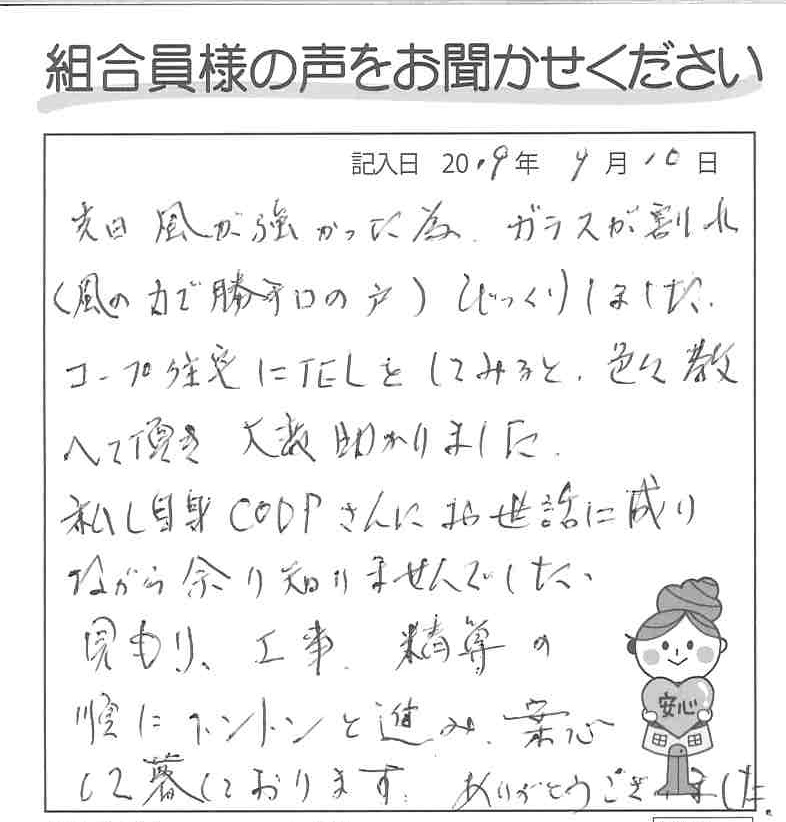 組合員様の声をお聞かせください
記入日 2019年 9月 10日
先日 風が強かった為、ガラスが割れ
(風の力で勝手口の戸) びっくりしました。
コープ住宅にTELをしてみると、色々教
へて頂き 大変助かりました。
私し自身COOPさんにお世話に成り
ながら余り知りませんでした、
見もり、工事、精算の
順にトントンと進み、安心
して暮しております。ありがとうございました。
安心